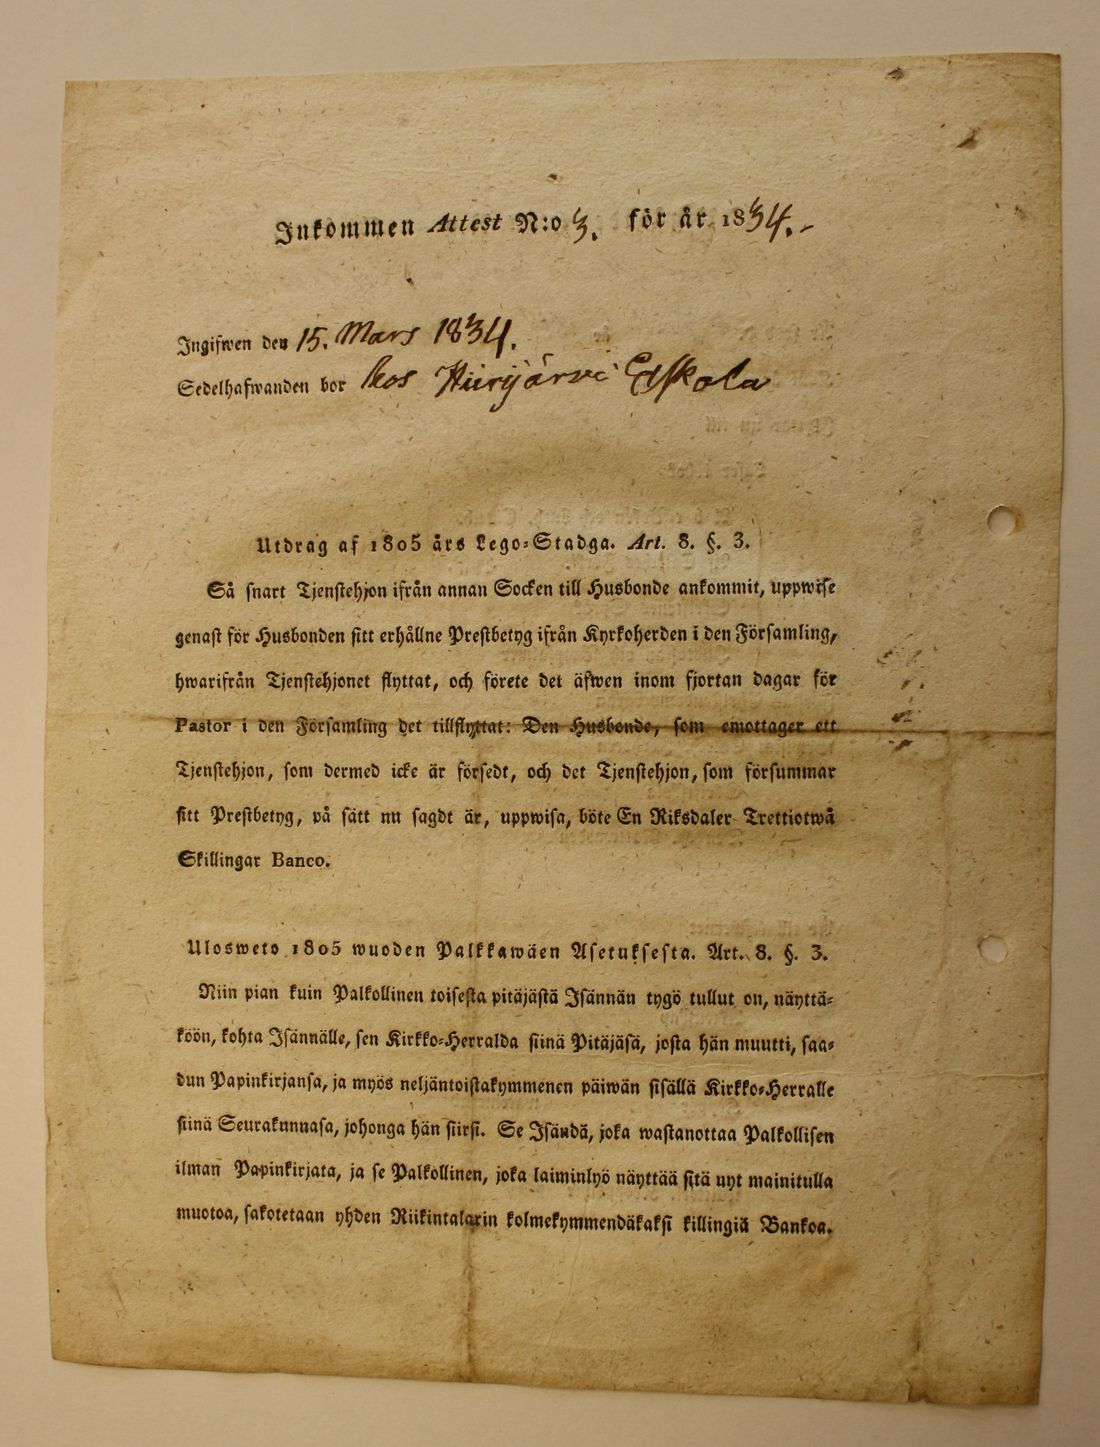 Inkommen Attest N:o 3. för år 1834.
Ingifwen den 15. Mars 1834.
Sedelhafwanden bor hos Hiirijärvi Eskola
Utdrag af 1805 års Lego-Stadga. Art. 8. §. 3.
Så snart Tjenstehjon ifrån annan Socken till Husbonde ankommit, uppwise
genast för Husbonden sitt erhållne Prestbetyg ifrån Kyrkoherden i den Församling,
hwarifrån Tjenstehjonet flyttat, och förete det äfwen inom fjortan dagar för
Pastor i den Församling det tillflyttat: Den Husbonde, som emottager ett
Tjenstehjon, som dermed icke är försedt, och det Tjenstehjon, som försummar
sitt Prestbetyg, på sätt nu sagdt är, uppwisa, böte En Riksdaler Trettiotwå
Skillingar Banco.
Ulosweto 1805 wuoden Palkkawäen Asetuksesta. Art. 8. §. 3.
Niin pian kuin Palkollinen toisesta pitäjästä Isännän tygö tullut on, näyttä-
köön, kohta Isännälle, sen Kirkko-Herralda siinä Pitäjäsä, josta hän muutti, saa-
dun Papinkirjansa, ja myös neljäntoistakymmenen päiwän sisällä Kirkko-Herralle
siinä Seurakunnasa, johonga hän siirsi. Se Isändä, joka wastanottaa Palkollisen
ilman Papinkirjata, ja se Palkollinen, joka laiminlyö näyttää sitä nyt mainitulla
muotoa, sakotetaan yhden Riikintalarin kolmekymmendäkaksi killingiä Bankoa.